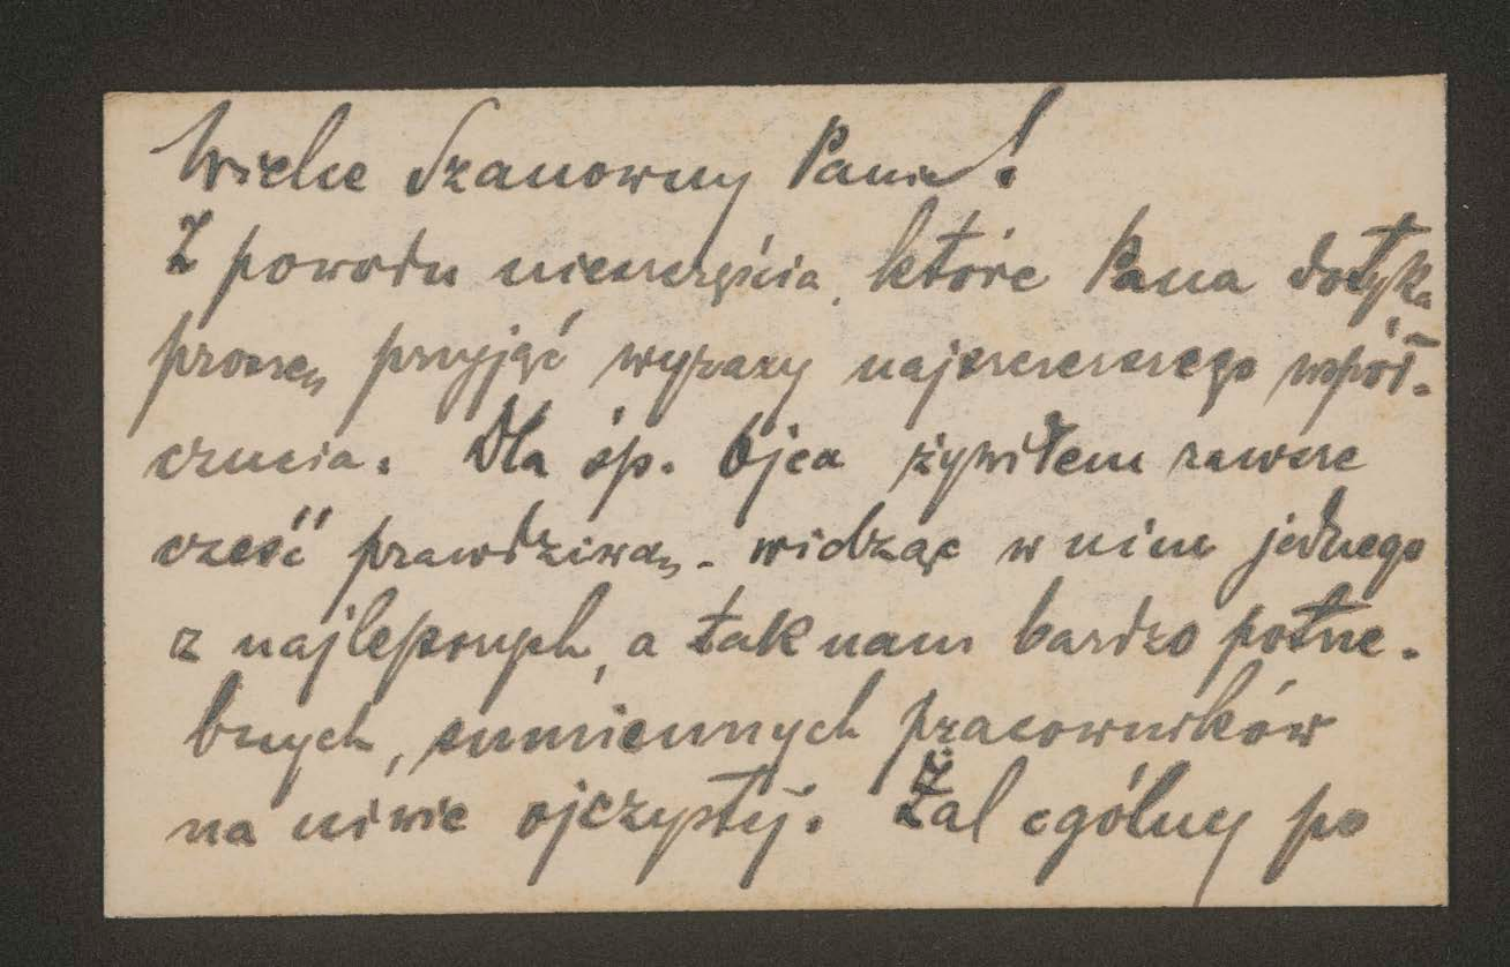 Wielce Szanowny Panie!
Z powodu nieszczęścia, które Pana dotyka
proszę przyjąć wyrazy najszczerszego współ-
czucia. Dla śp. Ojca żywiłem zawsze
cześć prawdziwą, widząc w nim jednego
z najlepszych, a tak nam bardzo potrze-
bnych, sumiennych pracowników
na niwie ojczystej. Żal ogólny po